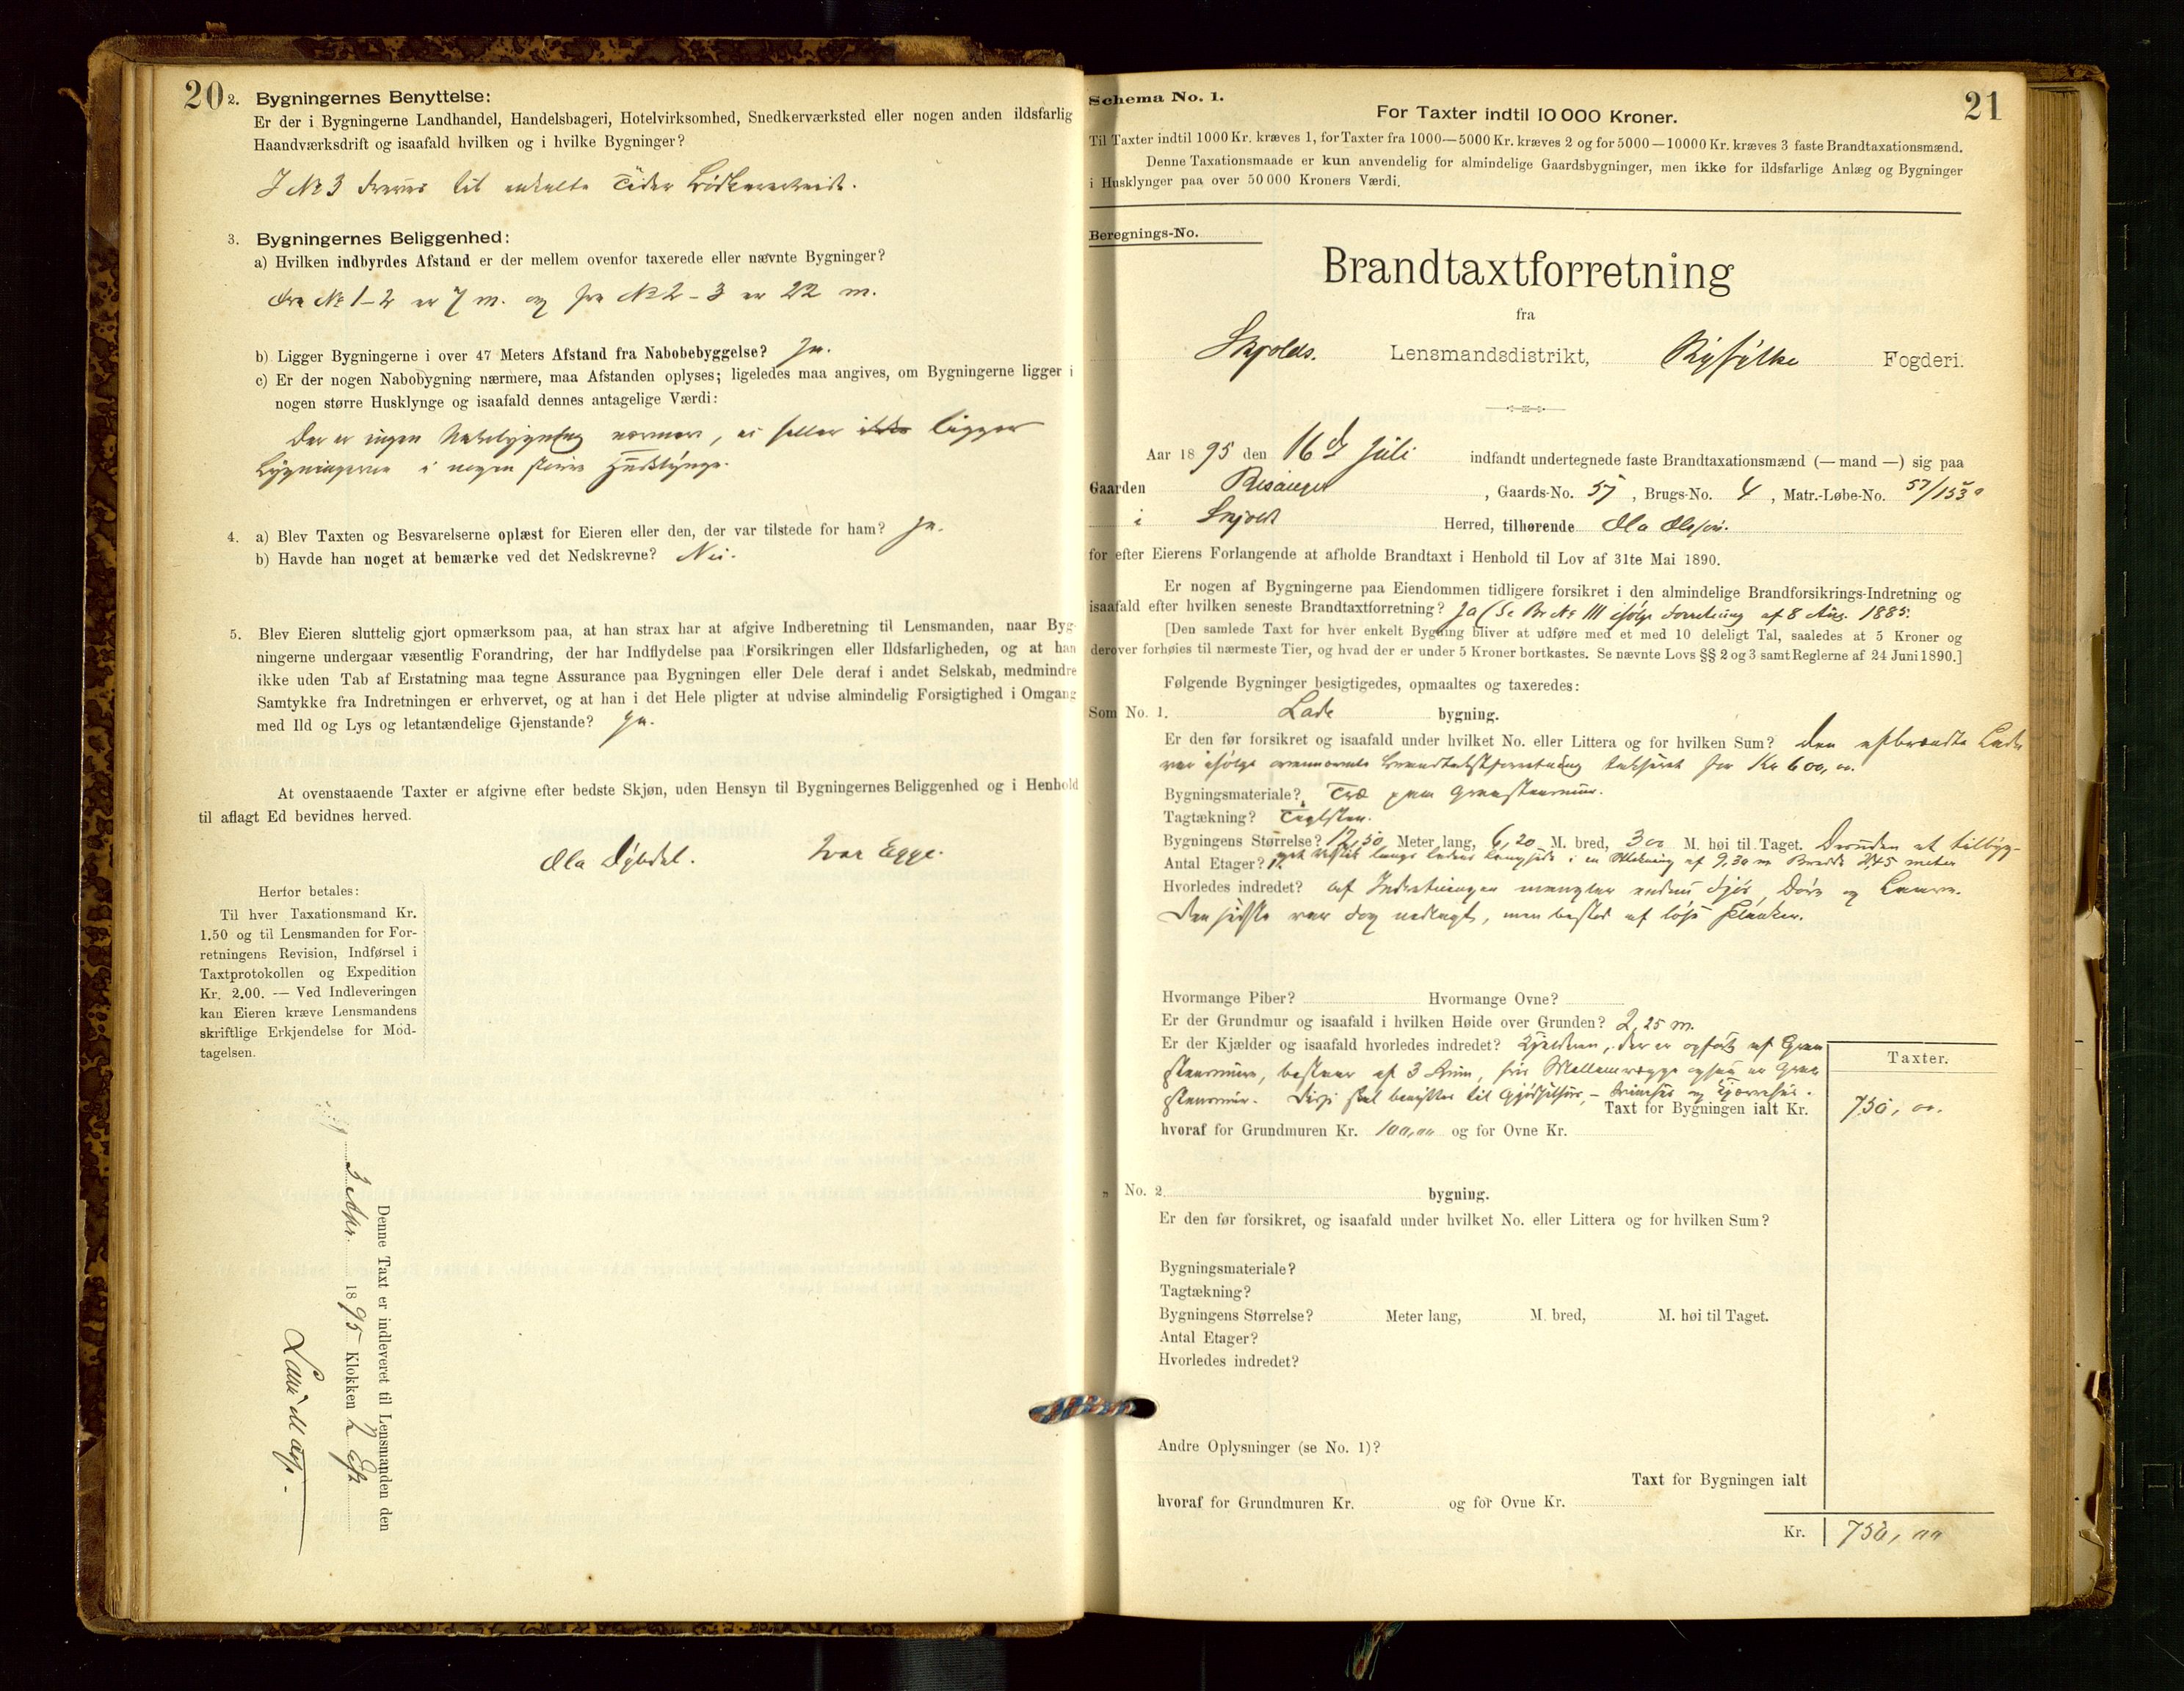 20
2. Bygningernes Benyttelse:
Er der i Bygningerne Landhandel, Handelsbageri, Hotelvirksomhed, Snedkerværksted eller nogen anden ildsfarlig
Haandværksdrift og isaafald hvilken og i hvilke Bygninger?
I No 3 drives til enkelte Tider Bødkerarbeide.
3. Bygningernes Beliggenhed:
a) Hvilken indbyrdes Afstand er der mellem ovenfor taxerede eller nævnte Bygninger?
Fra No 1-2 er 7 m. og fra No 2-3 er 22 m.
b) Ligger Bygningerne i over 47 Meters Afstand fra Nabobebyggelse? Ja.
c) Er der nogen Nabobygning nærmere, maa Afstanden oplyses; ligeledes maa angives, om Bygningerne ligger i
nogen større Husklynge og isaafald dennes antagelige Værdi:
Der er ingen Nabobygning nærmere, ei heller ikke ligger
Bygningerne i nogen større Husklynge.
4. a) Blev Taxten og Besvarelserne oplæst for Eieren eller den, der var tilstede for ham? Ja.
b) Havde han noget at bemærke ved det Nedskrevne? Nei.
5. Blev Eieren sluttelig gjort opmærksom paa, at han strax har at afgive Indberetning til Lensmanden, naar Byg-
ningerne undergaar væsentlig Forandring, der har Indflydelse paa Forsikringen eller Ildsfarligheden, og at han
ikke uden Tab af Erstatning maa tegne Assurance paa Bygningen eller Dele deraf i andet Selskab, medmindre
Samtykke fra Indretningen er erhvervet, og at han i det Hele pligter at udvise almindelig Forsigtighed i Omgang
med Ild og Lys og letantændelige Gjenstande? Ja.
At ovenstaaende Taxter er afgivne efter bedste Skjøn, uden Hensyn til Bygningernes Beliggenhed og i Henhold
til aflagt Ed bevidnes herved.
Ola Ivar Egge.
Herfor betales:
Til hver Taxationsmand Kr.
1.50 og til Lensmanden for For-
retningens Revision, Indførsel i
Taxtprotokollen og Expedition
Kr. 2.00. — Ved Indleveringen
kan Eieren kræve Lensmandens
skriftlige Erkjendelse for Mod-
tagelsen.
Denne Taxt er indleveret til Lensmanden den
3 Apr. 1895 Klokken 2 Eft
21
Schema No. 1.
For Taxter indtil 10 000 Kroner.
Til Taxter indtil 1000 Kr. kræves 1, for Taxter fra 1000—5000 Kr. kræves 2 og for 5000—10000 Kr. kræves 3 faste Brandtaxationsmænd.
Denne Taxationsmaade er kun anvendelig for almindelige Gaardsbygninger, men ikke for ildsfarlige Anlæg og Bygninger
i Husklynger paa over 50 000 Kroners Værdi.
Beregnings-No.
Brandtaxtforretning
fra
Skjolds. Lensmandsdistrikt, Ryfylke Fogderi.
Aar 1895 den 16d Juli indfandt undertegnede faste Brandtaxationsmænd (—mand—) sig paa
Gaarden Risanger, Gaards-No. 57, Brugs-No. 4, Matr.-Løbe-No. 57/153a
i Skjold Herred, tilhørende Ola Olsen.
for efter Eierens Forlangende at afholde Brandtaxt i Henhold til Lov af 31te Mai 1890.
Er nogen af Bygningerne paa Eiendommen tidligere forsikret i den almindelige Brandforsikrings-Indretning og
isaafald efter hvilken seneste Brandtaxtforretning? Ja (Se Br No III ifølge Forretning af 8 Aug. 1885.
[Den samlede Taxt for hver enkelt Bygning bliver at udføre med et med 10 deleligt Tal, saaledes at 5 Kroner og
derover forhøies til nærmeste Tier, og hvad der er under 5 Kroner bortkastes. Se nævnte Lovs §§ 2 og 3 samt Reglerne af 24 Juni 1890.]
Følgende Bygninger besigtigedes, opmaaltes og taxeredes:
Som No. 1. Lade bygning.
Er den før forsikret og isaafald under hvilket No. eller Littera og for hvilken Sum? Den afbrændte Lade
var ifølge ovennævnte Brandtaxtforretning taxeret for Kr 600,00.
Bygningsmateriale? Træ paa Graastensmur.
Tagtækning? Taglsten.
Bygningens Størrelse? 12,50 Meter lang, 6,20 M. bred, 3 00 M. høi til Taget. Desuden et tilbyg-
Antal Etager? langs Ladens Langside i en af 9,30 m Bredde 2,45 meter
Hvorledes indredet? Af Indretningen mangler endnu Døre og
Den sidste var dog nedlagt, men bestod af løse Planker.
Hvormange Piber? Hvormange Ovne?
Er der Grundmur og isaafald i hvilken Høide over Grunden? 2,25 m.
Er der Kjælder og isaafald hvorledes indredet? Kjelderen, der er opført af Graa
stensmure, bestaar af 3 Rum, hvis Mellemvægge ogsaa er Graa
stensmur. Disse skal benyttes til
Taxter.
Taxt for Bygningen ialt Kr. 750,00.
hvoraf for Grundmuren Kr. 100,00 og for Ovne Kr.
" No. 2 bygning.
Er den før forsikret, og isaafald under hvilket No. eller Littera og for hvilken Sum?
Bygningsmateriale?
Tagtækning?
Bygningens Størrelse? Meter lang, M. bred, M. høi til Taget.
Antal Etager?
Hvorledes indredet?
Andre Oplysninger (se No. 1)?
Taxt for Bygningen ialt
hvoraf for Grundmuren Kr. og for Ovne Kr.
Kr. 750,00